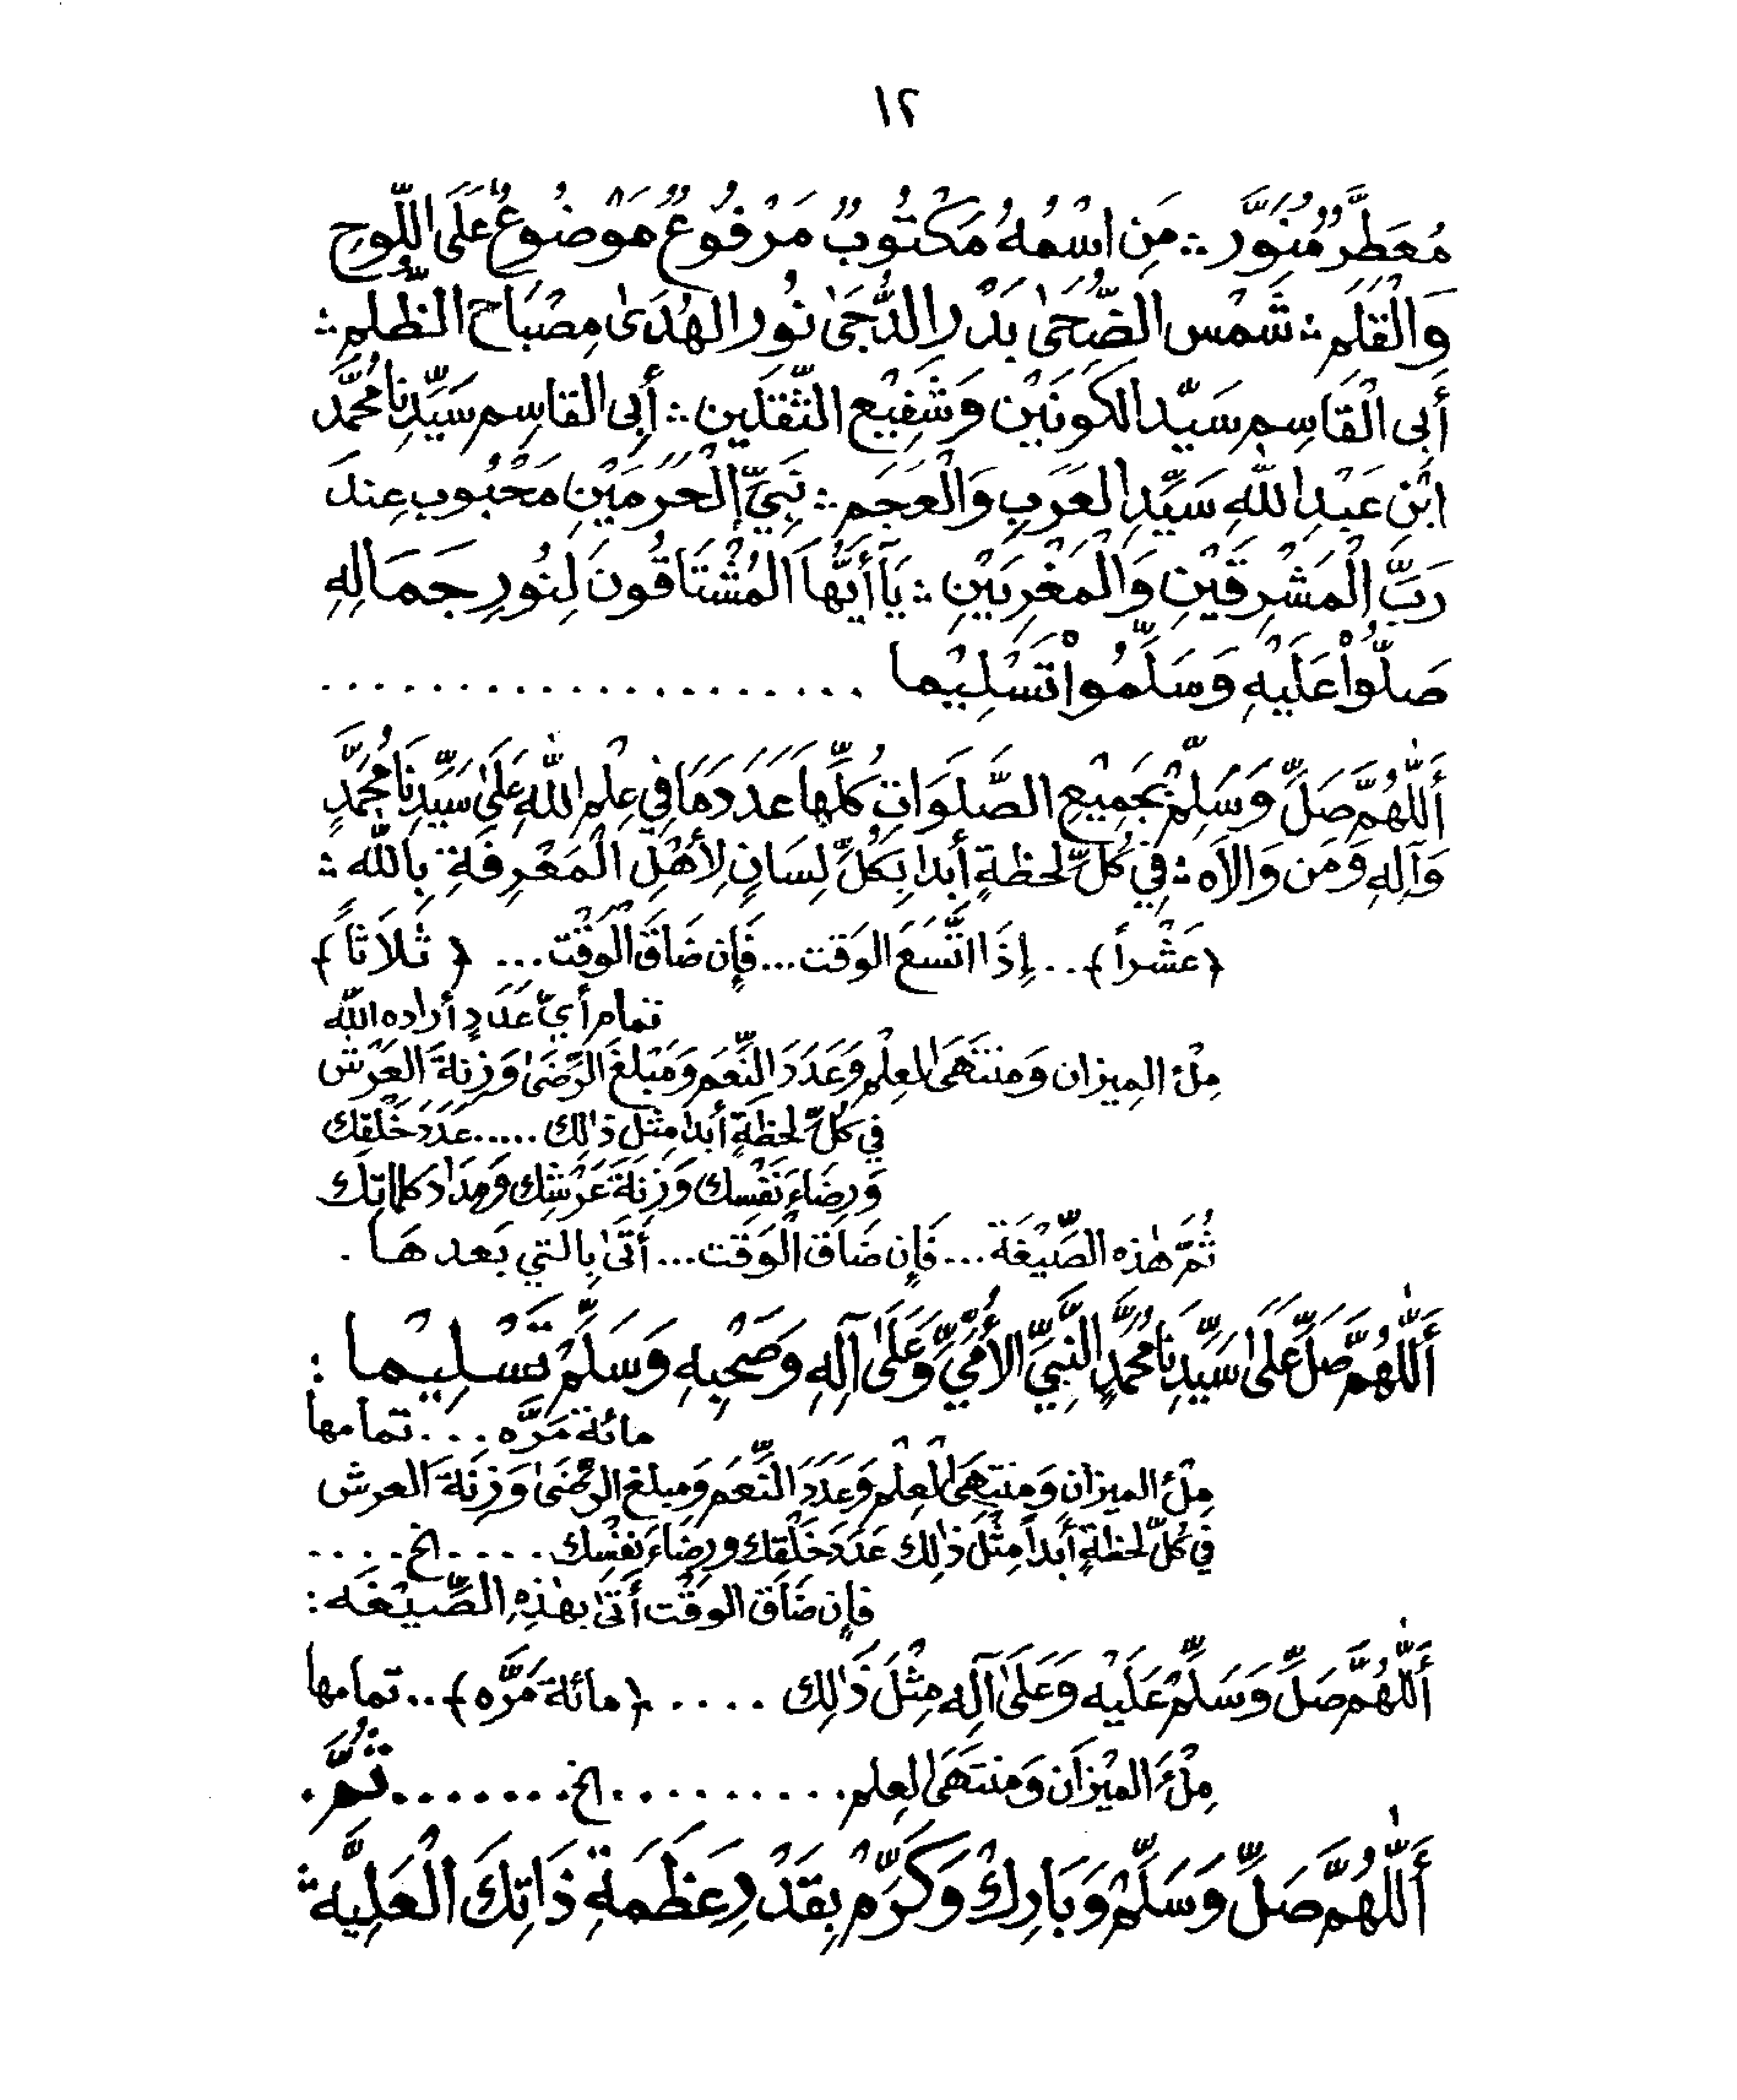 ١٢
مُعَطَّرٌ مُنَوَّر :: مَنِ اسْمُهُ مَكْتُوبٌ مَرْفُوعٌ مَوْضُوعٌ عَلَى اللَّوحِ
وَالْقَلَمِ :: شَمْسِ الضُّحَىٰ بَدْرِ الدُّجَىٰ نُورِ الهُدَىٰ مِصْبَاحِ الظُّلَمِ ::
أَبِى الْقَاسِمِ سَيِّدِ الكَوْنَيْنِ وَشَفِيْعِ الثَّقَلَينِ :: أَبِى القاسِمِ سَيِّدِنَا مُحَمَّد
ابْنِ عَبْدِ اللّٰهِ سَيِّدِ العَرَبِ وَالْعَجَمِ :: نَبِيِّ الْحَرَمَيْنِ مَحْبُوبٍ عِندَ
رَبِّ الْمَشْرِقَيْنِ وَالْمَغْرِبَيْنِ :: يَا أَيُّهَا الْمُشْتَاقُونَ لِنُورِ جَمَالِهِ
صَلُّوْا عَلَيْهِ وَسَلِّمُوْا تَسْلِيْما ....................
أَللّٰهُمَّ صَلِّ وَسَلِّمْ بِجَمِيْعِ الصَّلَوَاتِ كُلِّهَا عَدَدَ مَا فِي عِلْمِ اللّٰهِ عَلَىٰ سَيِّدِنَا مُحَمَّدٍ
وَآلِهِ وَمَن وَالاَه :: فِي كُلِّ لحظةٍ أبدا بِكُلِّ لِسَانٍ لِأَهْلِ الْمَعْرِفَةِ بِاللّٰه ::
﴿عَشْراً﴾ .. إِذَا اتَّسَعَ الوَقت ... فَإِن ضَاقَ الْوَقْت ... ﴿ثَلاَثاً﴾
تمام أيِّ عَدَدٍ أراده اللّٰه
مِلْءَ المِيزان وَمنتَهَىٰ العِلْمِ وَعَدَدَ النِّعَمِ وَمَبْلَغَ الرِّضَىٰ وَزِنَةَ العَرْش
فِي كُلِّ لحظةٍ أبدا مثل ذٰلِك ..... عَدَدَ خَلْقِك
وَرِضَاءَ نَفْسِك وَزِنَةَ عَرْشِك وَمِدَادَ كلماتِك
ثُمَّ هٰذه الصِّيْغَة ... فَإِن ضَاقَ الْوَقت ... أَتَىٰ بِالتي بَعدهَا .
أَللّٰهُمَّ صَلِّ عَلَىٰ سَيِّدِنَا مُحَمَّدٍ النَّبِيِّ الأُمِّيِّ وَعَلَىٰ آلِهِ وَصَحْبِهِ وَسَلِّمْ تَسْلِيْما :
مائة مَرَّه ... تمامها
مِلْءَ الميزان وَمنتَهَىٰ العِلْمِ وَعَدَدَ النِّعَمِ وَمبلغ الرِّضَىٰ وَزِنَةَ العرش
فِي كُلِّ لحظةٍ أَبَداً مِثْلَ ذٰلِك عَدَدَ خَلْقِك ورِضَاءَ نَفْسِك ..... الخ ....
فإن ضَاقَ الوَقْت أَتَىٰ بِهٰذِهِ الصِّيْغَه :
أَللّٰهُمَّ صَلِّ وَسَلِّمْ عَلَيْهِ وَعَلَىٰ آلِهِ مِثْلَ ذٰلِك .... ﴿مائة مَرَّه﴾ .. تمامها
مِلْءَ الميْزَان وَمنتَهَىٰ العِلم .......... الخ ........ ثُمَّ .
أَللّٰهُمَّ صَلِّ وَسَلِّمْ وَبَارِكْ وَكَرِّمْ بِقَدْرِ عَظَمَةِ ذَاتِكَ الْعَلِيَّه ::